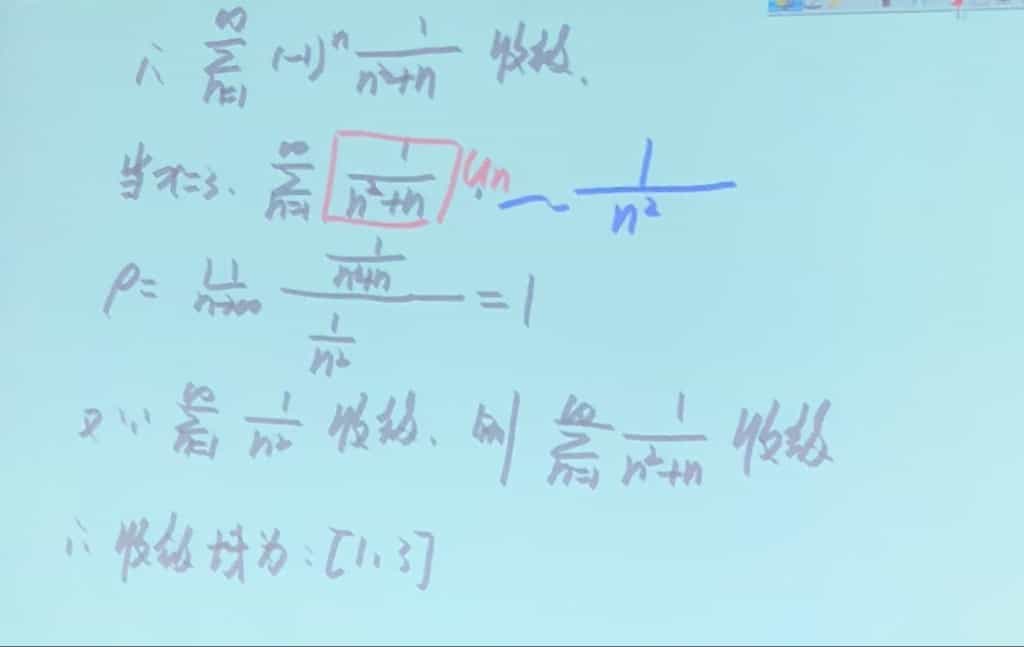 ∴ ∑_{n=1}^{∞} (-1)^n 1/(n²+n) 收敛.
当x=3. ∑_{n=1}^{∞} 1/(n²+n) . Un ~ 1/n²
ρ= lim_{n→∞} (1/(n²+n))/(1/n²) = 1
又∵ ∑_{n=1}^{∞} 1/n² 收敛. 则 ∑_{n=1}^{∞} 1/(n²+n) 收敛
∴ 收敛域为: [1, 3]